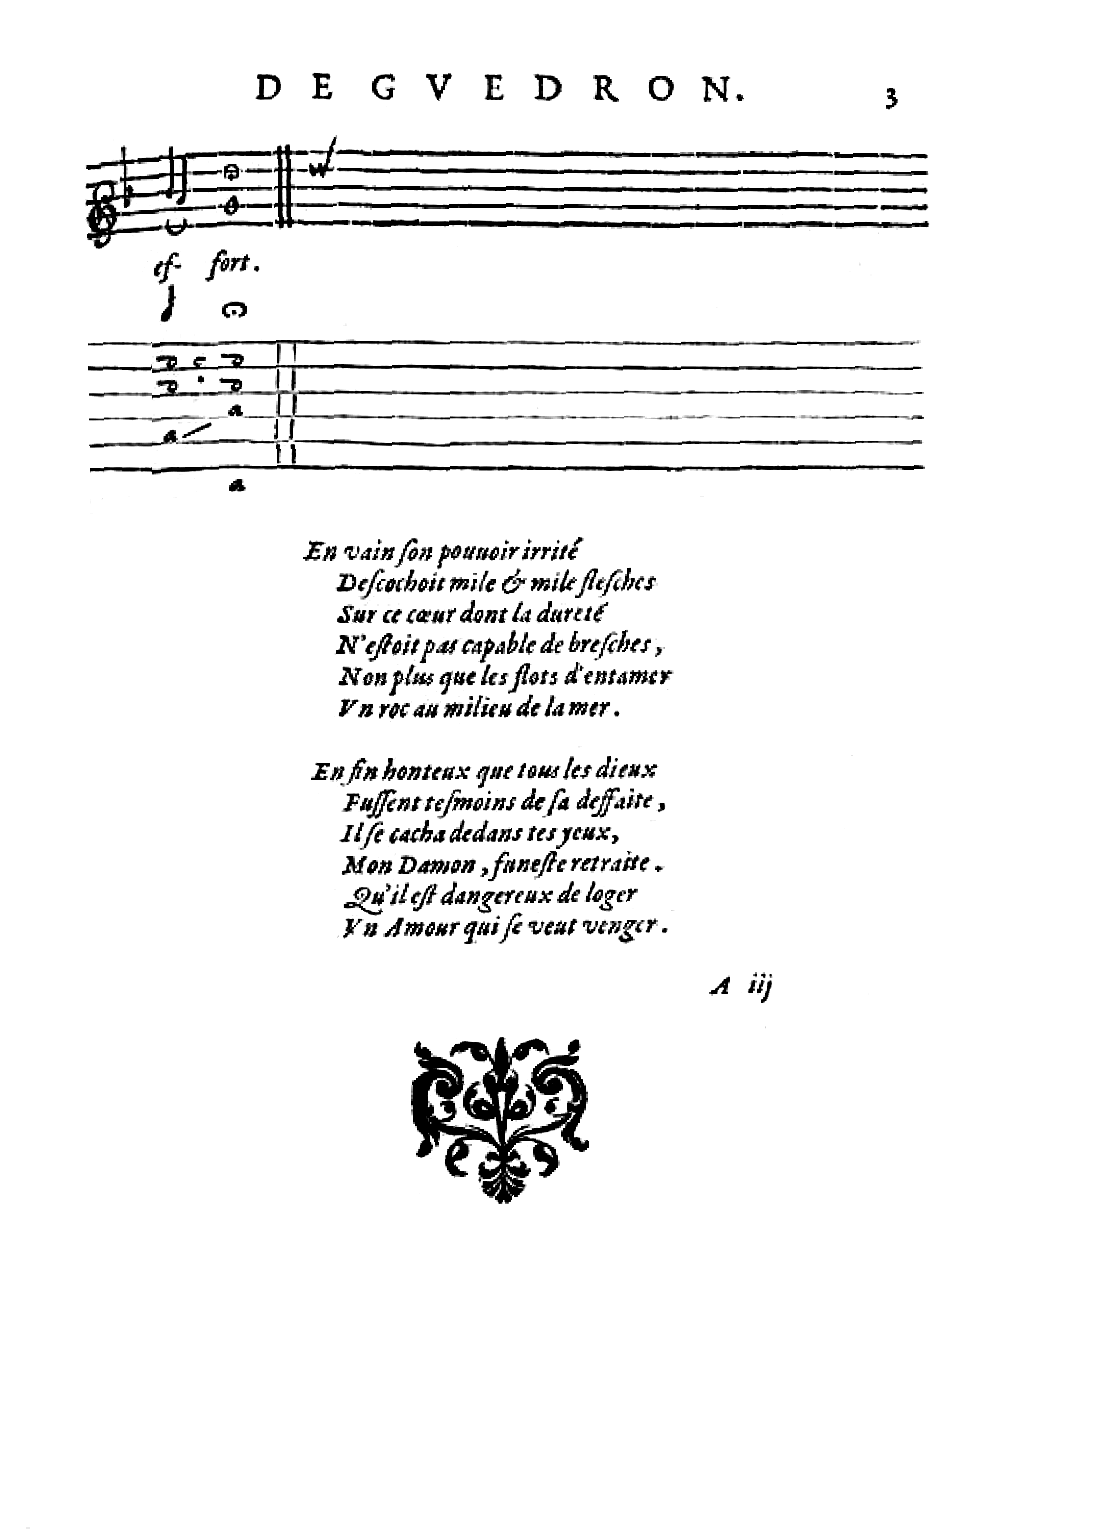 DE GVEDRON. 3
ef- fort.
En vain ſon pouuoir irrité
Deſcochoit mile & mile fleſches
Sur ce cœur dont la dureté
N'eſtoit pas capable de breſches,
Non plus que les flots d'entamer
Vn roc au milieu de la mer.
En fin honteux que tous les dieux
Fuſſent teſmoins de ſa deffaite,
Il ſe cacha dedans tes yeux,
Mon Damon, funeſte retraite.
Qu'il eſt dangereux de loger
Vn Amour qui ſe veut venger.
A iij